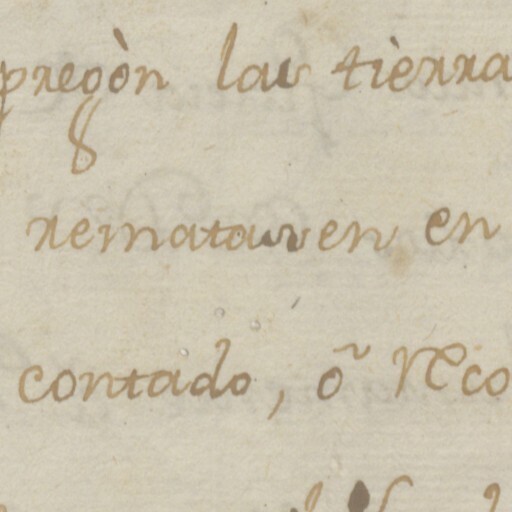 pregòn las tièrra
rematasen en
contado, õ reco